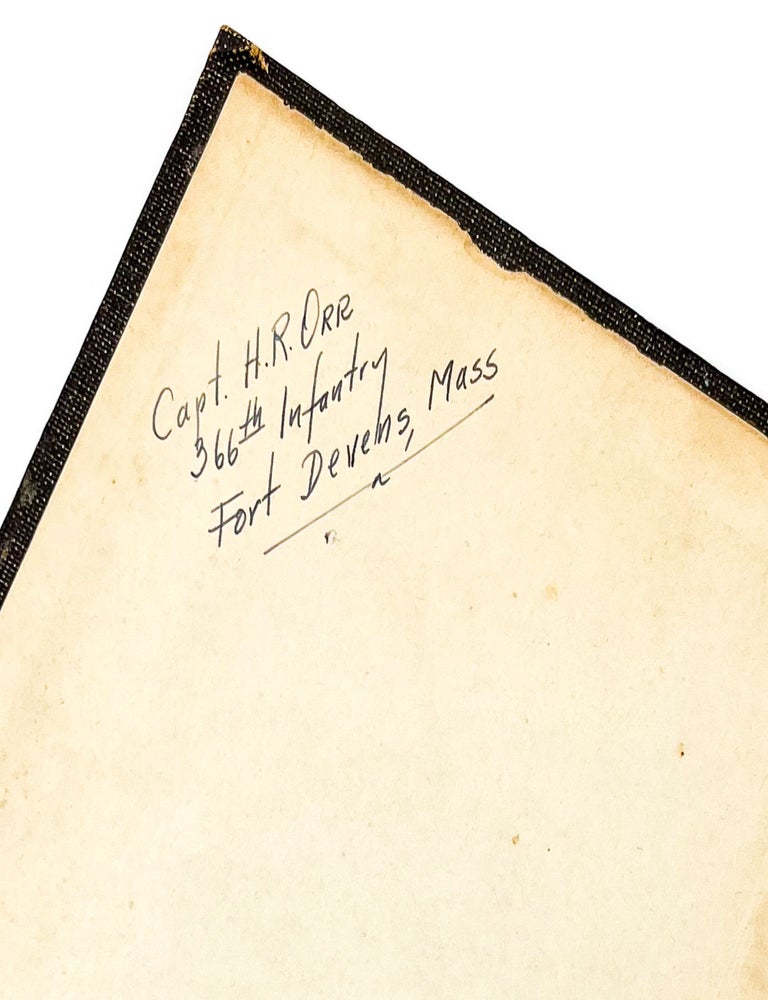 Capt. H.R. ORR
366th Infantry
Fort Devens, Mass